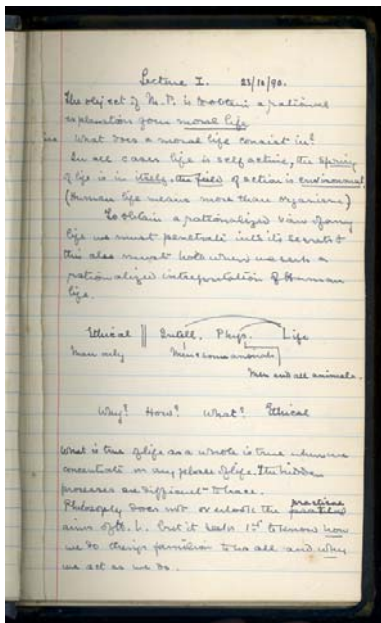 Lecture I. 23/10/90.
The object of M.P. is to obtain a rational
explanation of our moral life
i.e. What does a moral life consist in?
In all cases life is self active, the spring
of life is in itself, the field of action is environment
(Human life means more than organism)
To obtain a rationalized view of any
life we must penetrate into its secrets &
this also must hold where we seek a
rationalized interpretation of Human
life.
Ethical || Intell. Phys. Life
Men only Men & some animals
Men and all animals.
Why? How? What? Ethical
What is true of life as a whole is true when we
concentrate on any phase of life. The hidden
processes are difficult to trace.
practical
Philosophy does not overlook the
aims of L. but it seeks 1st to know how
we do things familiar to us all and why
we act as we do.